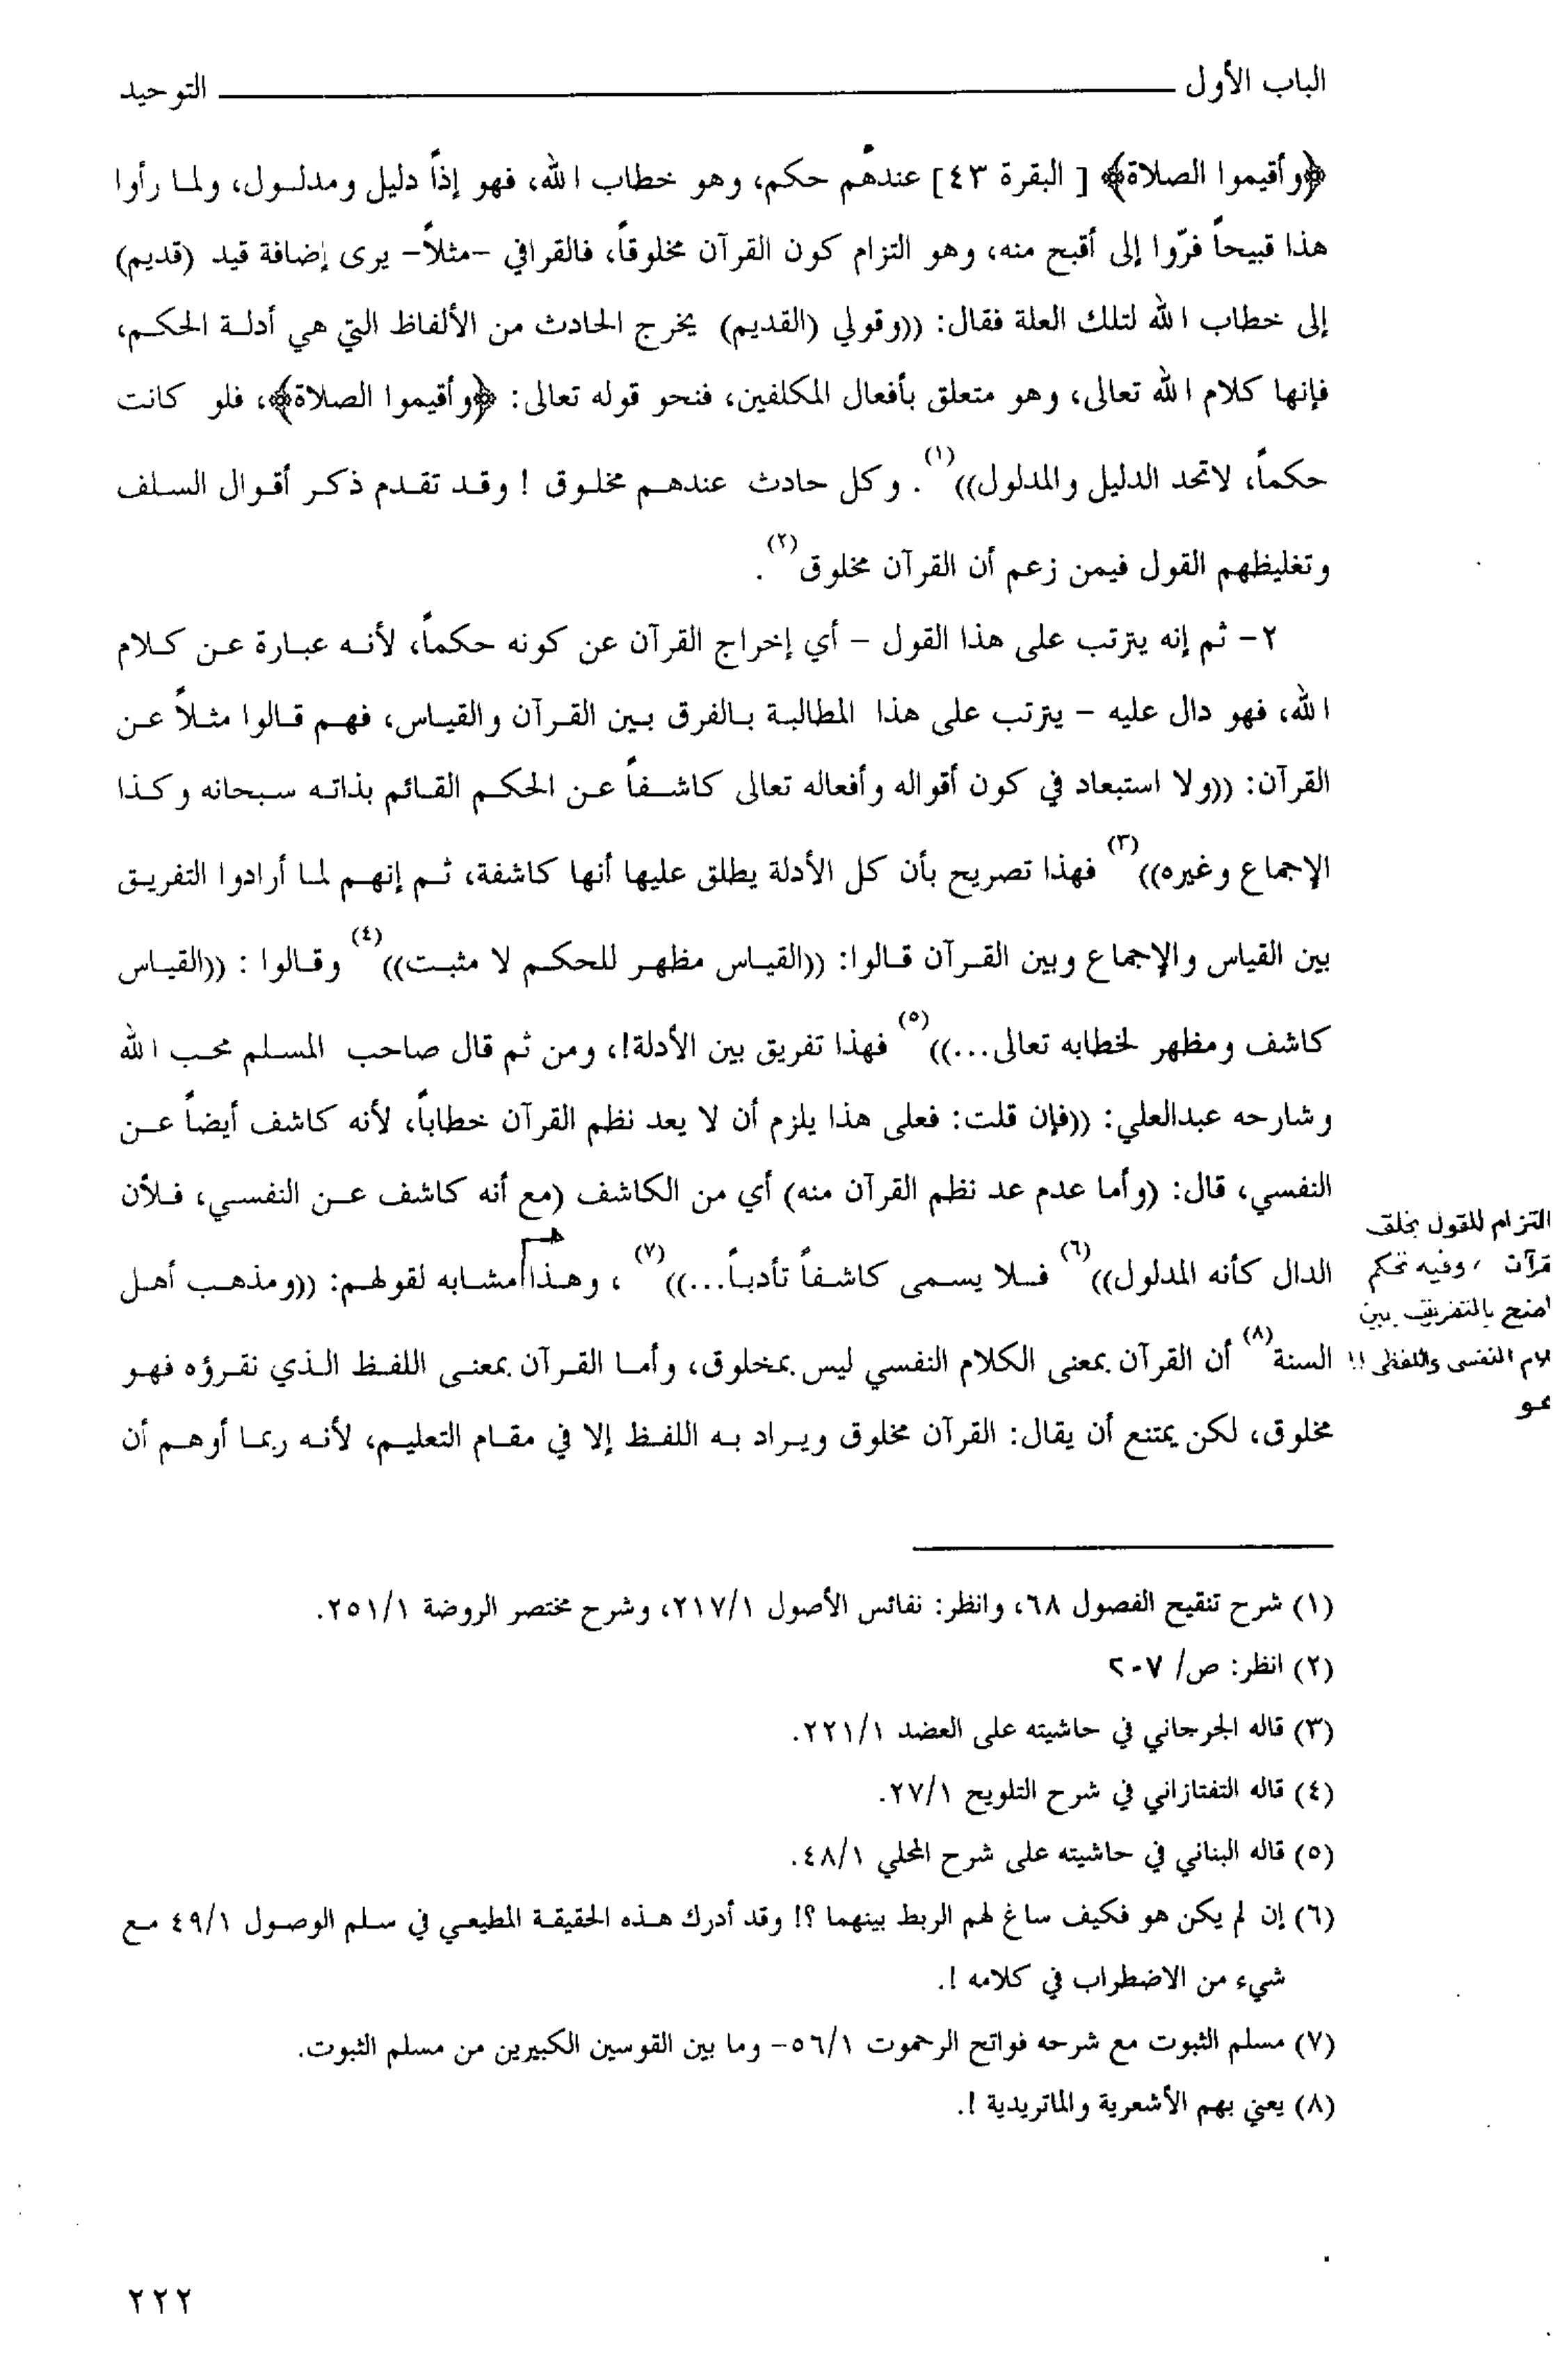 الباب الأول التوحيد
﴿وأقيموا الصلاة﴾ [ البقرة ٤٣] عندهم حكم، وهو خطاب الله، فهو إذاً دليل ومدلول، ولما رأوا
هذا قبيحاً فرّوا إلى أقبح منه، وهو التزام كون القرآن مخلوقاً، فالقرافي -مثلاً- يرى إضافة قيد (قديم)
إلى خطاب الله لتلك العلة فقال: ((وقولي (القديم) يخرج الحادث من الألفاظ التي هي أدلة الحكم،
فإنها كلام الله تعالى، وهو متعلق بأفعال المكلفين، فنحو قوله تعالى: ﴿وأقيموا الصلاة﴾، فلو كانت
حكماً، لاتحد الدليل والمدلول))(١). وكل حادث عندهم مخلوق ! وقد تقدم ذكر أقوال السلف
وتغليظهم القول فيمن زعم أن القرآن مخلوق(٢).
٢- ثم إنه يترتب على هذا القول - أي إخراج القرآن عن كونه حكماً، لأنه عبارة عن كلام
الله، فهو دال عليه - يترتب على هذا المطالبة بالفرق بين القرآن والقياس، فهم قالوا مثلاً عن
القرآن: ((ولا استبعاد في كون أقواله وأفعاله تعالى كاشفاً عن الحكم القائم بذاته سبحانه وكذا
الإجماع وغيره))(٣) فهذا تصريح بأن كل الأدلة يطلق عليها أنها كاشفة، ثم إنهم لما أرادوا التفريق
بين القياس والإجماع وبين القرآن قالوا: ((القياس مظهر للحكم لا مثبت))(٤) وقالوا : ((القياس
كاشف ومظهر لخطابه تعالى...))(٥) فهذا تفريق بين الأدلة!، ومن ثم قال صاحب المسلم محب الله
وشارحه عبدالعلي: ((فإن قلت: فعلى هذا يلزم أن لا يعد نظم القرآن خطاباً، لأنه كاشف أيضاً عن
النفسي، قال: (وأما عدم عد نظم القرآن منه) أي من الكاشف (مع أنه كاشف عن النفسي، فلأن
الدال كأنه المدلول))(٦) فلا يسمى كاشفاً تأدباً...))(٧) ، وهذا مشابه لقولهم: ((ومذهب أهل
السنة(٨) أن القرآن بمعنى الكلام النفسي ليس بمخلوق، وأما القرآن بمعنى اللفظ الذي نقرؤه فهو
مخلوق، لكن يمتنع أن يقال: القرآن مخلوق ويراد به اللفظ إلا في مقام التعليم، لأنه ربما أوهم أن
التزام للقول بخلق
قرآن ، وفيه تحكم
بالتفريق بين
النفسي واللفظي !!
(١) شرح تنقيح الفصول ٦٨، وانظر: نفائس الأصول ٢١٧/١، وشرح مختصر الروضة ٢٥١/١.
(٢) انظر: ص/ ٢٠٧
(٣) قاله الجرجاني في حاشيته على العضد ٢٢١/١.
(٤) قاله التفتازاني في شرح التلويح ٢٧/١.
(٥) قاله البناني في حاشيته على شرح المحلي ٤٨/١.
(٦) إن لم يكن هو فكيف ساغ لهم الربط بينهما ؟! وقد أدرك هذه الحقيقة المطيعي في سلم الوصول ٤٩/١ مع
شيء من الاضطراب في كلامه !.
(٧) مسلم الثبوت مع شرحه فواتح الرحموت ٥٦/١- وما بين القوسين الكبيرين من مسلم الثبوت.
(٨) يعني بهم الأشعرية والماتريدية !.
٢٢٢